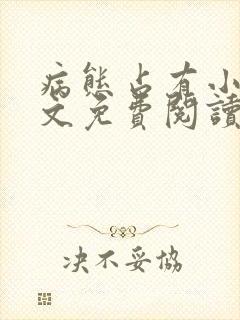 病態占有小
文免費閱讀
决不妥協